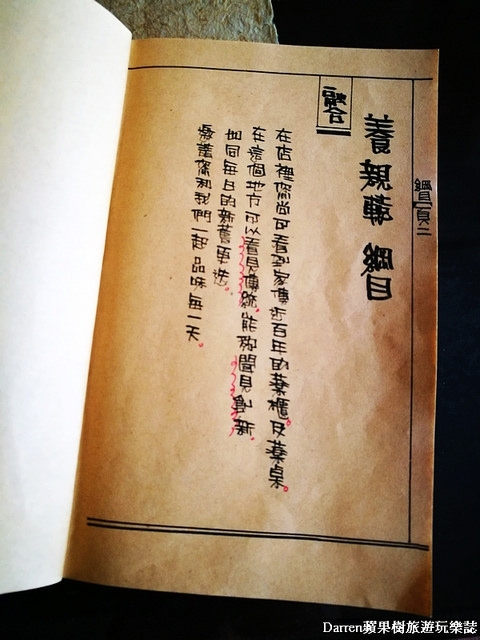 綱目頁二
養親軒 綱目
融合
在店裡您尚可看到家傳近百年的藥櫃及藥桌。
在這個地方可以看見傳統，能夠聞見創新，
如同每日的新舊更迭。
邀請您和我們一起品味每一天。
Darren蘋果樹旅遊玩樂誌